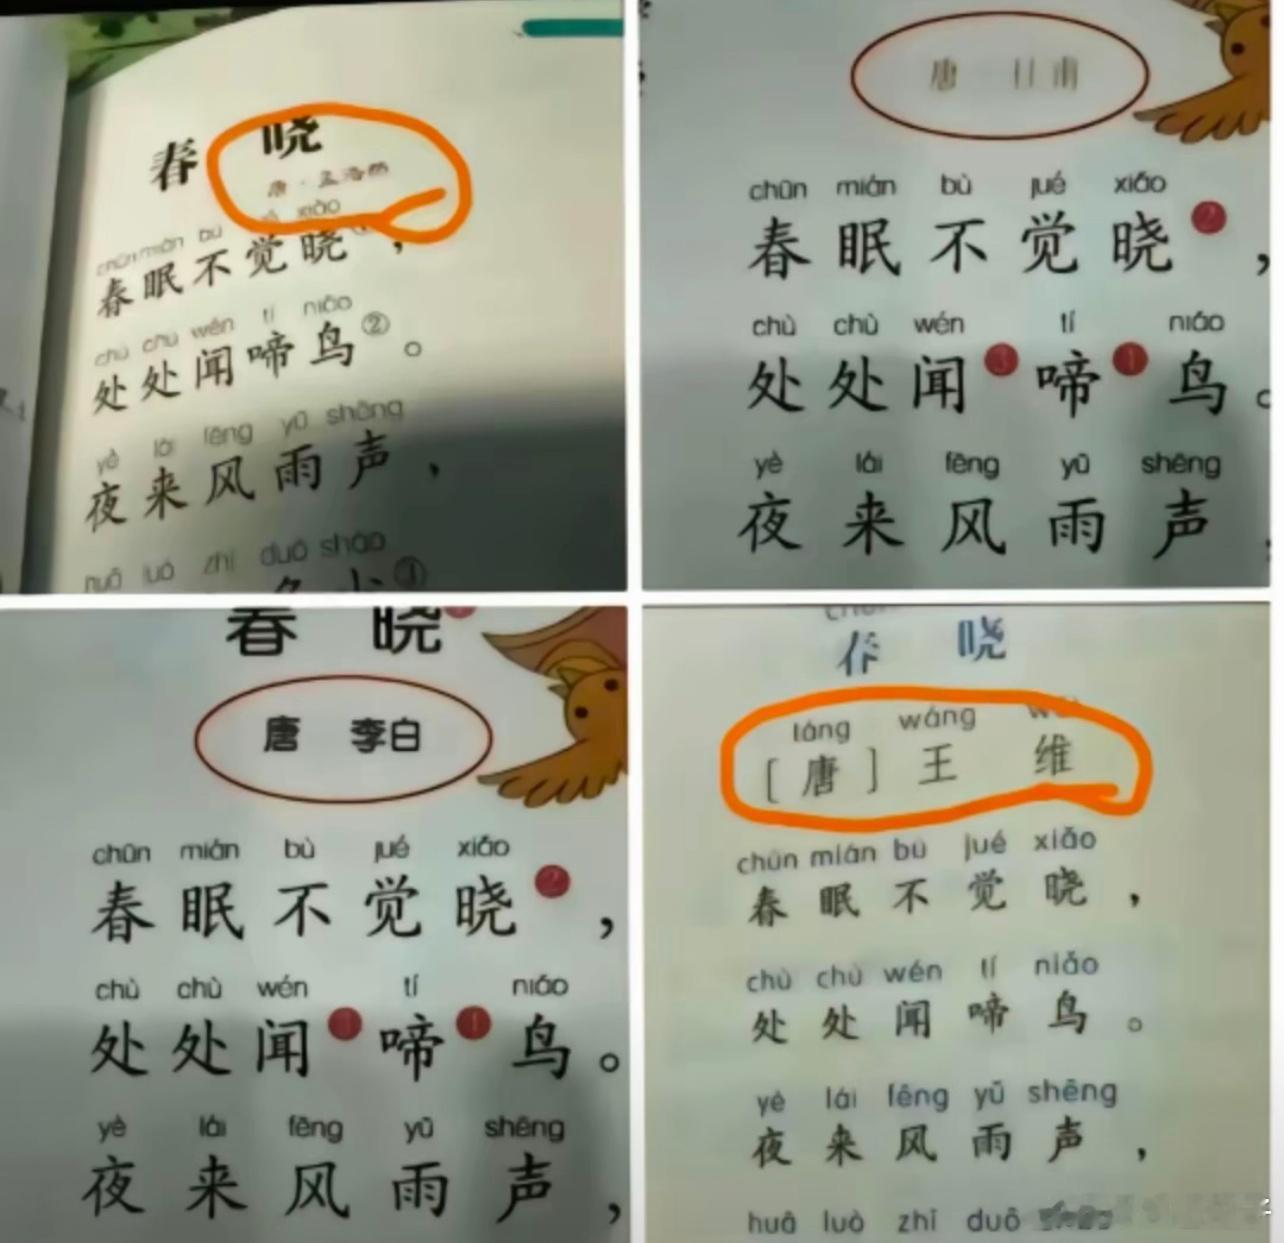 春 晓
唐·孟浩然
chūn mián bù jué xiǎo
春眠不觉晓①，
chù chù wén tí niǎo
处处闻啼鸟②。
yè lái fēng yǔ shēng
夜来风雨声，
huā luò zhī duō shǎo
唐
chūn mián bù jué xiǎo
春眠不觉晓②，
chù chù wén tí niǎo
处处闻③啼鸟。
yè lái fēng yǔ shēng
夜来风雨声
春 晓
唐 李白
chūn mián bù jué xiǎo
春眠不觉晓②，
chù chù wén tí niǎo
处处闻啼鸟。
yè lái fēng yǔ shēng
夜来风雨声，
春 晓
táng wáng
[唐] 王 维
chūn mián bù jué xiǎo
春眠不觉晓，
chù chù wén tí niǎo
处处闻啼鸟。
yè lái fēng yǔ shēng
夜来风雨声，
huā luò zhī duō